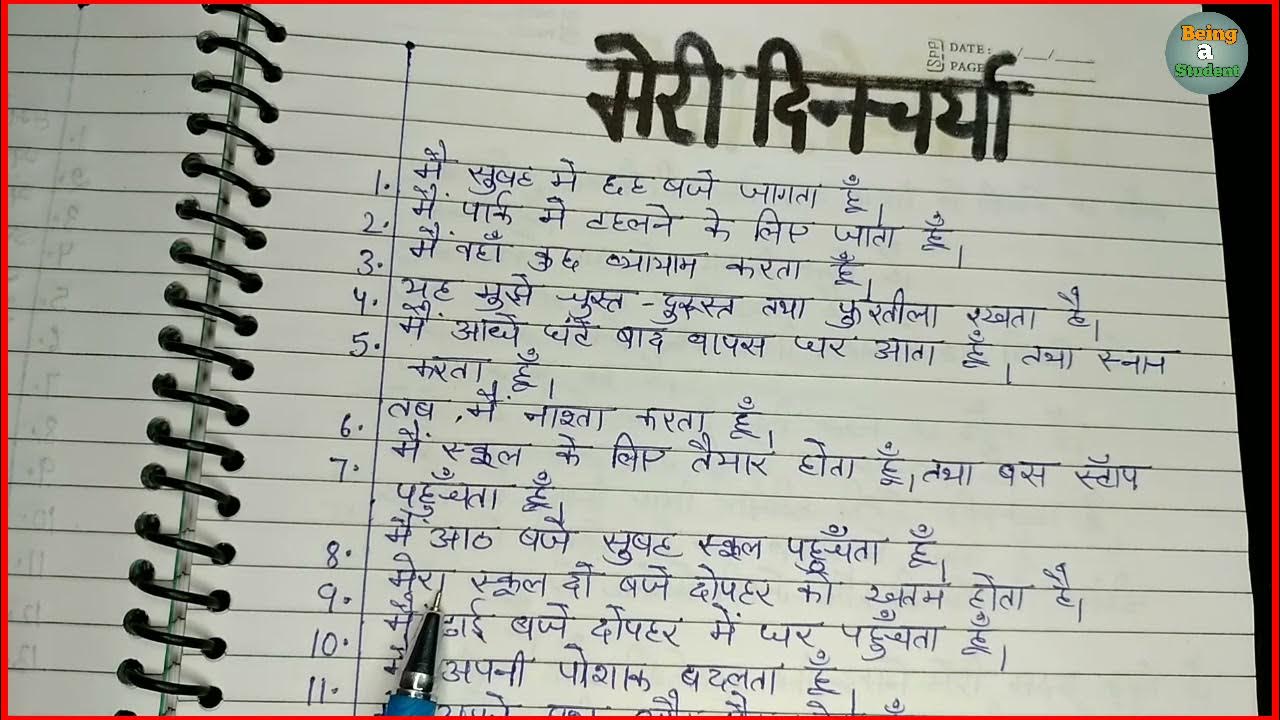 Being
a
Student
SPP DATE: __/__/__
PAGE
मेरी दिनचर्या
1. मैं सुबह में छह बजे जागता हूँ।
2. मैं पार्क में टहलने के लिए जाता हूँ।
3. मैं वहाँ कुछ व्यायाम करता हूँ।
4. यह मुझे चुस्त-दुरुस्त तथा फुरतीला रखता है।
5. मैं आधे घंटे बाद वापस घर आता हूँ। तथा स्नान
करता हूँ।
6. तब, मैं नाश्ता करता हूँ।
7. मैं स्कूल के लिए तैयार होता हूँ। तथा बस स्टॉप
पहुँचता हूँ।
8. मैं आठ बजे सुबह स्कूल पहुँचता हूँ।
9. मेरा स्कूल दो बजे दोपहर को खतम होता है।
10. मैं ढाई बजे दोपहर में घर पहुँचता हूँ।
11. अपनी पोशाक बदलता हूँ।